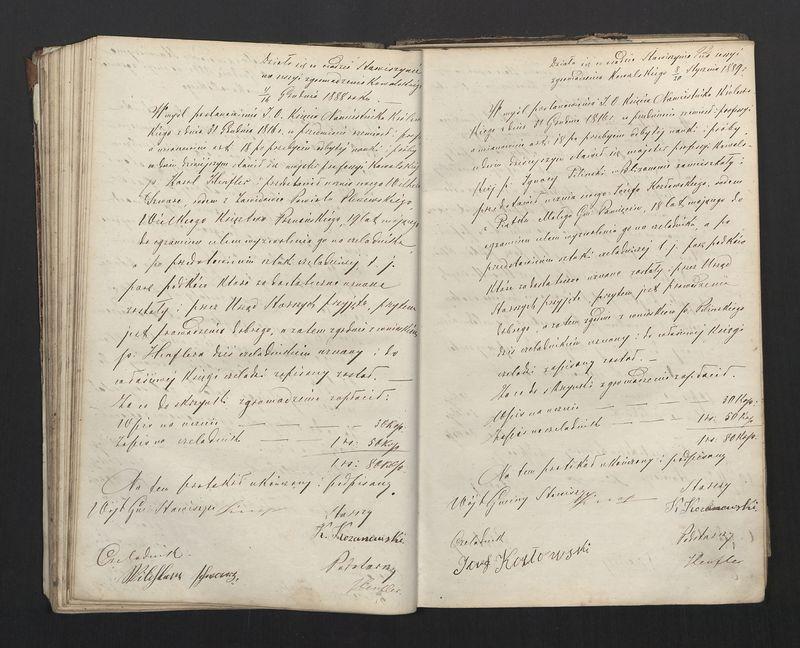 Działo się w mieście Stawiszynie
na sessyi zgromadzenia Kowalskiego
4/16 Grudnia 1888 roku.
W myśl postanowienia J. O. Księcia Namiestnika Królew-
skiego z dnia 31 Grudnia 1816 r. w przedmiocie rzemiosł i profes.
a mianowicie art. 18 po przebyciu odbytej nauki i próby
w dniu dzisiejszym stawił się majster professyi Kowalskiej
p. Karol Henfler i przedstawił ucznia swego Wilhelma
Szwarc, rodem z Powiatu Pleszewskiego
Wielkiego Księstwa Poznańskiego, 19 lat mającego
do egzaminu celem wyzwolenia go na czeladnika
a po przedstawieniu sztuk czeladniczej t. j.
parę podków które za dostateczne uznane
zostały i przez Urząd Starszych przyjęte, przytem
jest prowadzenia dobrego, a zatem zgodnie z wnioskiem
p. Henflera dziś czeladnikiem uznany i do
właściwej Księgi czeladzi zapisany został. —
Za co do skrzynki zgromadzenia zapłacił.
Wpis na ucznia — — — 30 Kop.
Zapis na czeladnik — — 1 rs. 50 Kop.
1 rs. 80 Kop.
Na tem protokół ukończony i podpisany
Wójt Gminy Stawiszyn
Starszy
K. Kozanowski
Czeladnik.
Wilhelm Schwarz
Podstarszy
Henfler.
Działo się w mieście Stawiszynie na sessyi
zgromadzenia Kowalskiego 8/20 Stycznia 1889 r.
W myśl postanowienia J. O. Księcia Namiestnika Królew-
skiego z dnia 31 Grudnia 1816 r. w przedmiocie rzemiosł i professyi
a mianowicie art. 18 po przebyciu odbytej nauki i próby
w dniu dzisiejszym stawił się majster professyi Kowals-
kiej p. Ignacy Piliński w zamieszkały i
przedstawił ucznia swego Józefa Kozłowskiego, rodem
z Małego Gm. Pamięcin, 18 lat mającego do
egzaminu celem wyzwolenia go na czeladnika, a po
przedstawieniu sztuki czeladniczej t. j. parę podków
które za dostateczne uznane zostały i przez Urząd
Starszych przyjęte, przytem jest prowadzenia
dobrego, a zatem zgodnie z wnioskiem p. Pilińskiego
dziś czeladnikiem uznany i do właściwej Księgi
czeladzi zapisany został. —
Za co do skrzynki zgromadzenia zapłacił.
Wpis na ucznia — — — 30 Kop.
Zapis na czeladnik — — 1 rs. 50 Kop.
1 rs. 80 Kop.
Na tem protokół ukończony i podpisany
Wójt Gminy Stawiszyn
Starszy
K. Kozanowski
Czeladnik
Józef Kozłowski
Podstarszy
Henfler